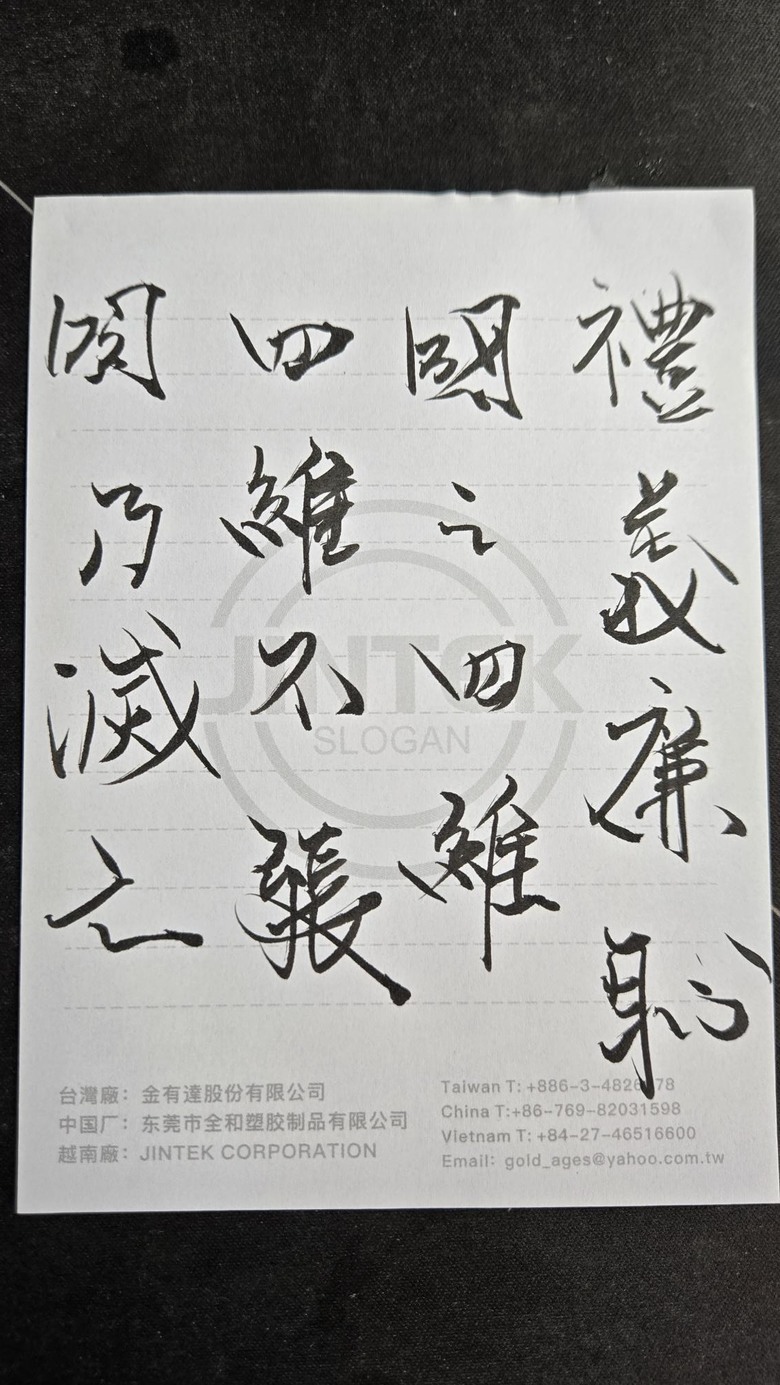 禮義廉恥
國之四維
四維不張
國乃滅亡
JINTEK
SLOGAN
台灣廠：金有達股份有限公司
中国厂：东莞市全和塑胶制品有限公司
越南廠：JINTEK CORPORATION
Taiwan T: +886-3-4826 78
China T:+86-769-82031598
Vietnam T: +84-27-46516600
Email: gold_ages@yahoo.com.tw